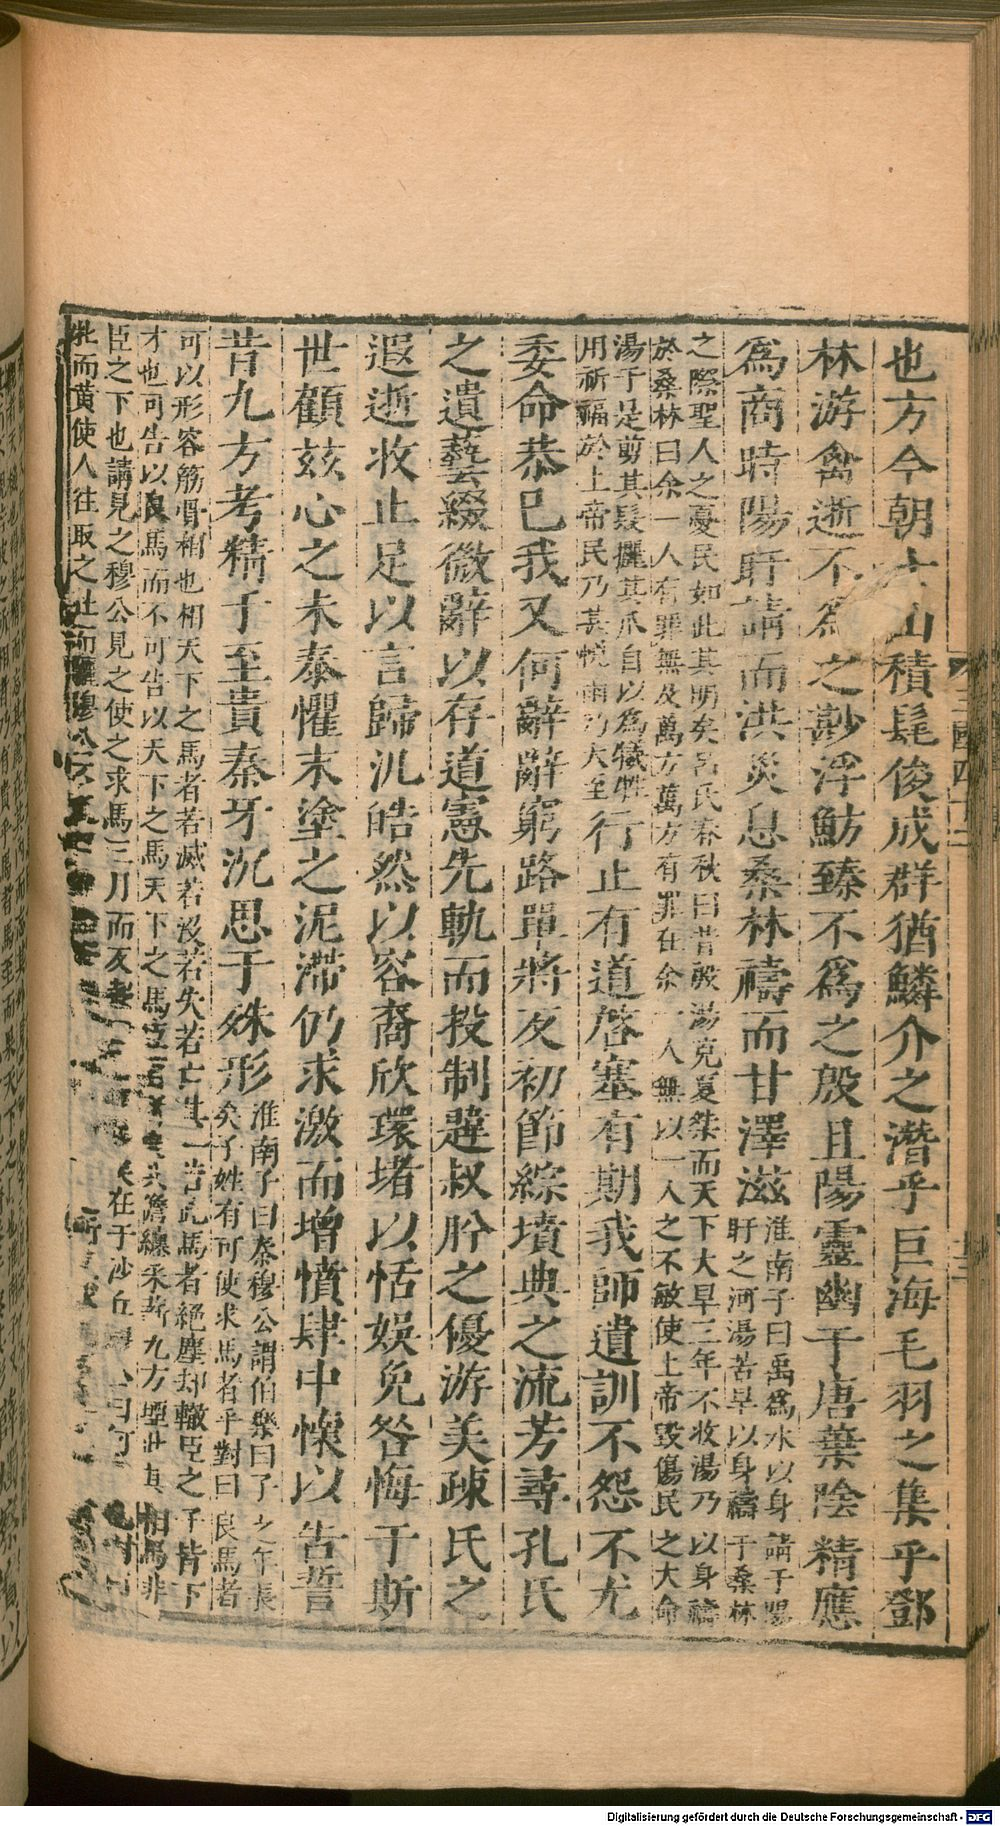 也方今朝士山積髦俊成群猶鱗介之潛乎巨海毛羽之集乎鄧
林游禽逝不爲之尠浮魴臻不爲之殷且陽靈幽于唐葉陰精應
爲商時陽盱請而洪災息桑林禱而甘澤滋
淮南子曰禹爲水以身請于陽
盱之河湯苦旱以身禱于桑林
之際聖人之憂民如此其明矣呂氏春秋曰昔殷湯克夏桀而天下大旱三年不收湯乃以身禱
於桑林曰余一人有罪無及萬方萬方有罪在余一人無以一人之不敏使上帝毀傷民之大命
湯于是剪其髮攦其爪自以爲犧牲
用祈福於上帝民乃甚悅雨乃大至
行止有道啓塞有期我師遺訓不怨不尤
委命恭已我又何辭辭窮路單將反初節綜墳典之流芳尋孔氏
之遺藝綴微辭以存道憲先軌而投制韙叔肸之優游美疎氏之
遐逝收止足以言歸汎皓然以容裔欣環堵以恬娛免咎悔于斯
世顧玆心之未泰懼末塗之泥滯仍求激而增憤肆中懷以告誓
昔九方考精于至貴秦牙沉思于殊形
淮南子曰秦穆公謂伯樂曰子之年長
矣子姓有可使求馬者乎對曰良馬者
可以形容筋骨相也相天下之馬者若滅若沒若失若亡其一若此馬者絕塵却轍臣之子皆下
才也可告以良馬而不可告以天下之馬天下之馬 臣有所與共儋纏采薪九方堙此其相馬非
臣之下也請見之穆公見之使之求馬三月而反 在于沙丘 公曰何
牝而黄使人往取之牡而驪穆公
三國四十二